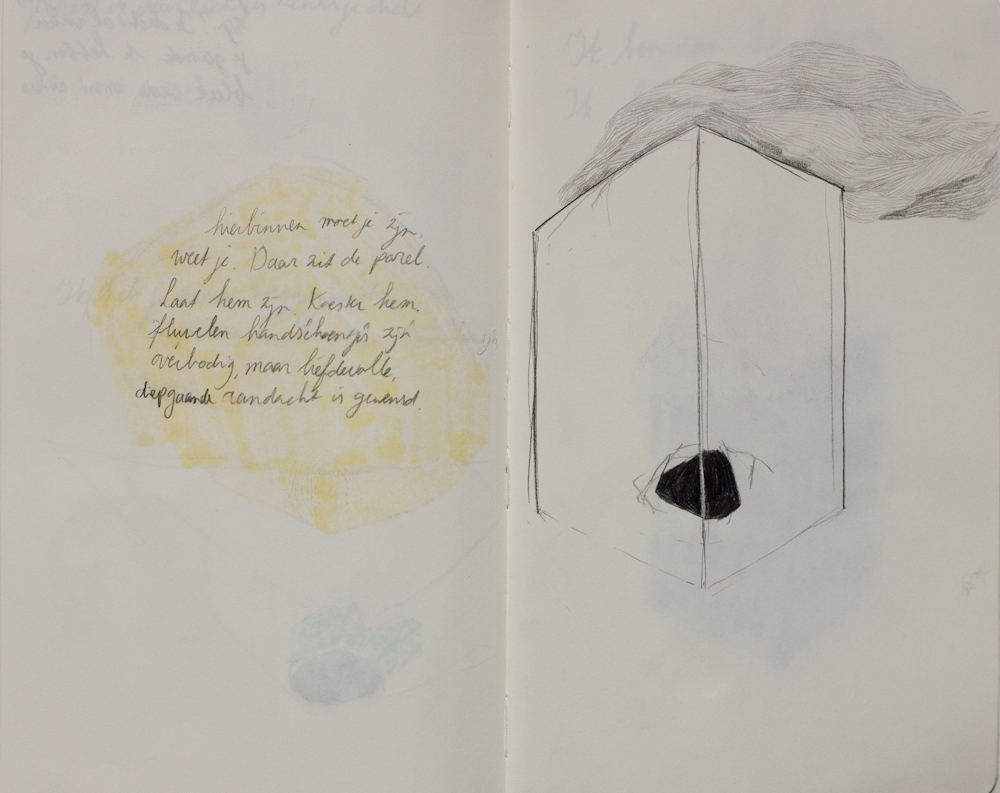 hierbinnen moet je zijn,
weet je. Daar zit de parel.
Laat hem zijn. Koester hem.
fluwelen handschoentjes zijn
overbodig, maar liefdevolle,
diepgaande aandacht is gewenst.